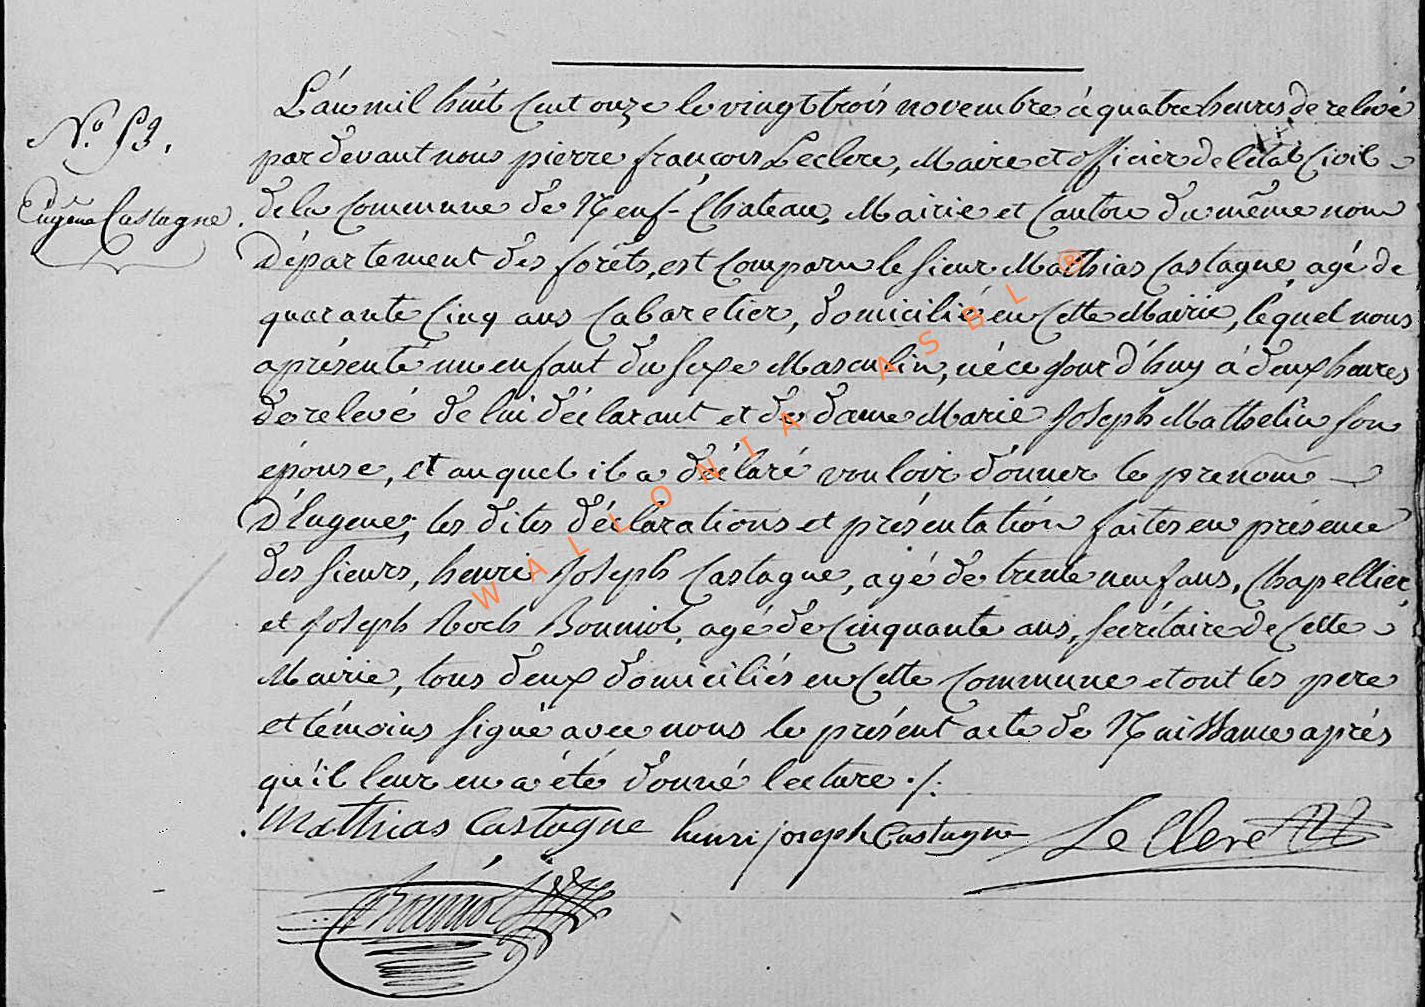 L'an mil huit cent onze le vingt trois novembre à quatre heures de relevé
N.° 53.
par devant nous pierre françois Leclerc, Maire et officier de l'état Civil
Eugène Castagne.
de la Commune de Neuf-Chateau, Mairie et Canton du même nom
Département des forêts, est comparu le sieur Mathias Castagne agé de
quarante Cinq ans Cabaretier, domicilié en Cette Mairie, lequel nous
a présenté un enfant du sexe Masculin, né ce jour d'huy à deux heures
de relevé de lui déclarant et de dame Marie Joseph Mathelin son
épouse, et auquel il a déclaré vouloir donner le prenom
D'Eugene, les dites déclarations et présentation faites en présence
des sieurs, henri Joseph Castagne, agé de trente neuf ans, Chapellier,
et Joseph Roch Bouniol, agé de Cinquante ans, secrétaire de Cette
Mairie, tous deux domiciliés en Cette Commune et ont les pere
et témoins signé avec nous le présent acte de Naissance après
qu'il leur en a été donné lecture ./.
Mathias Castagne henri joseph Castagne Le Clerc
Bouniol
WALLONIA ASBL ®